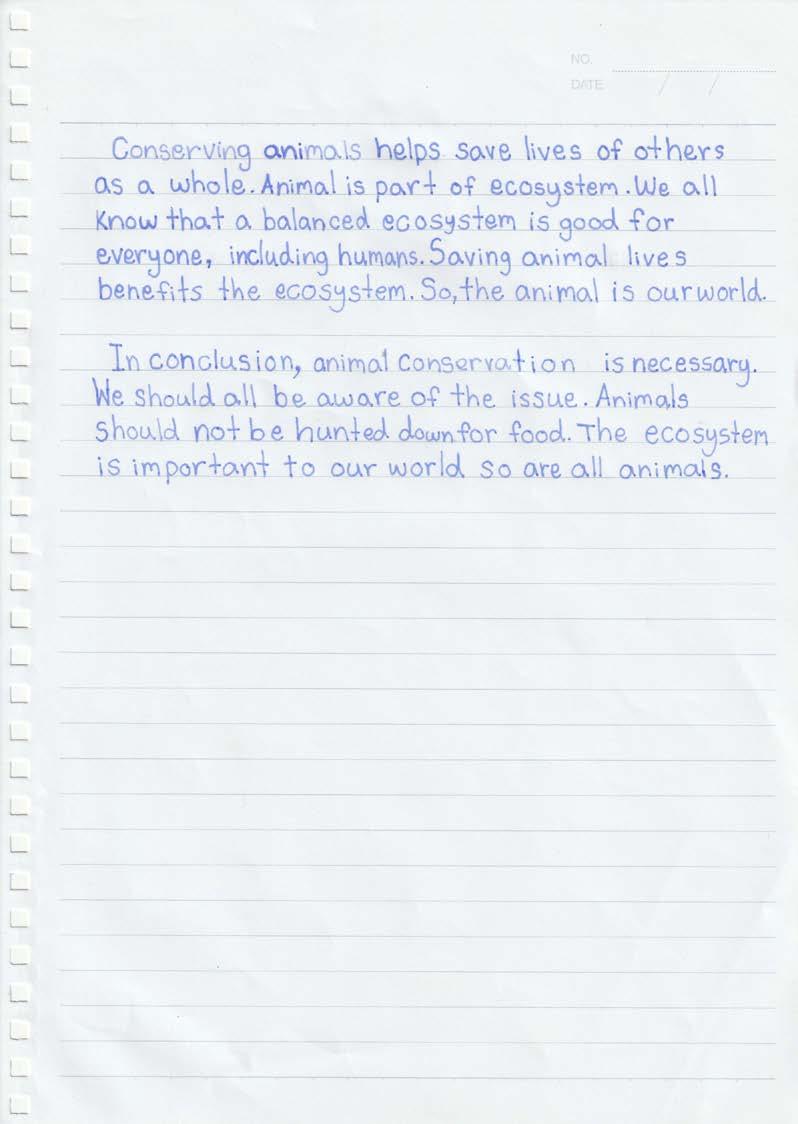 NO.
DATE / /
Conserving animals helps save lives of others
as a whole. Animal is part of ecosystem. We all
know that a balanced ecosystem is good for
everyone, including humans. Saving animal lives
benefits the ecosystem. So, the animal is our world.
In conclusion, animal conservation is necessary.
We should all be aware of the issue. Animals
should not be hunted down for food. The ecosystem
is important to our world so are all animals.